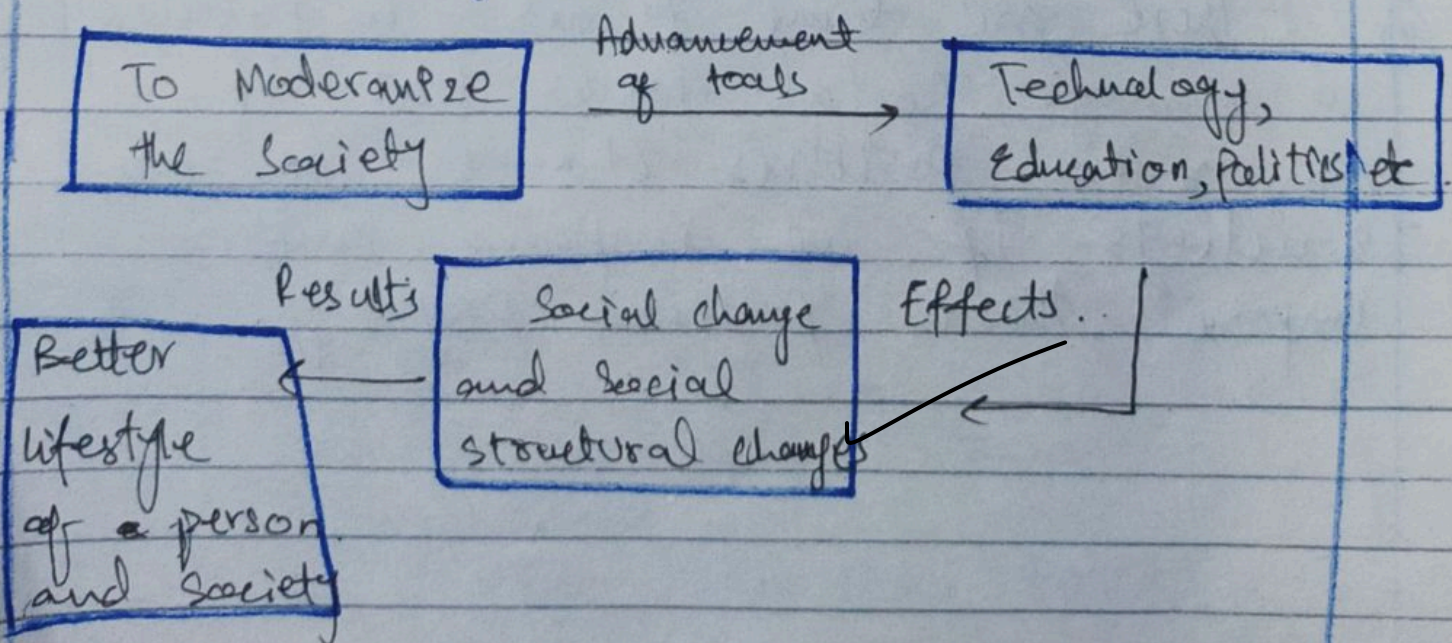 To Moderanize
the Society
Advancement
of tools
Technology,
Education, Politics etc
Effects..
Social change
and Social
structural changes
Results
Better
lifestyle
of a person
and Society